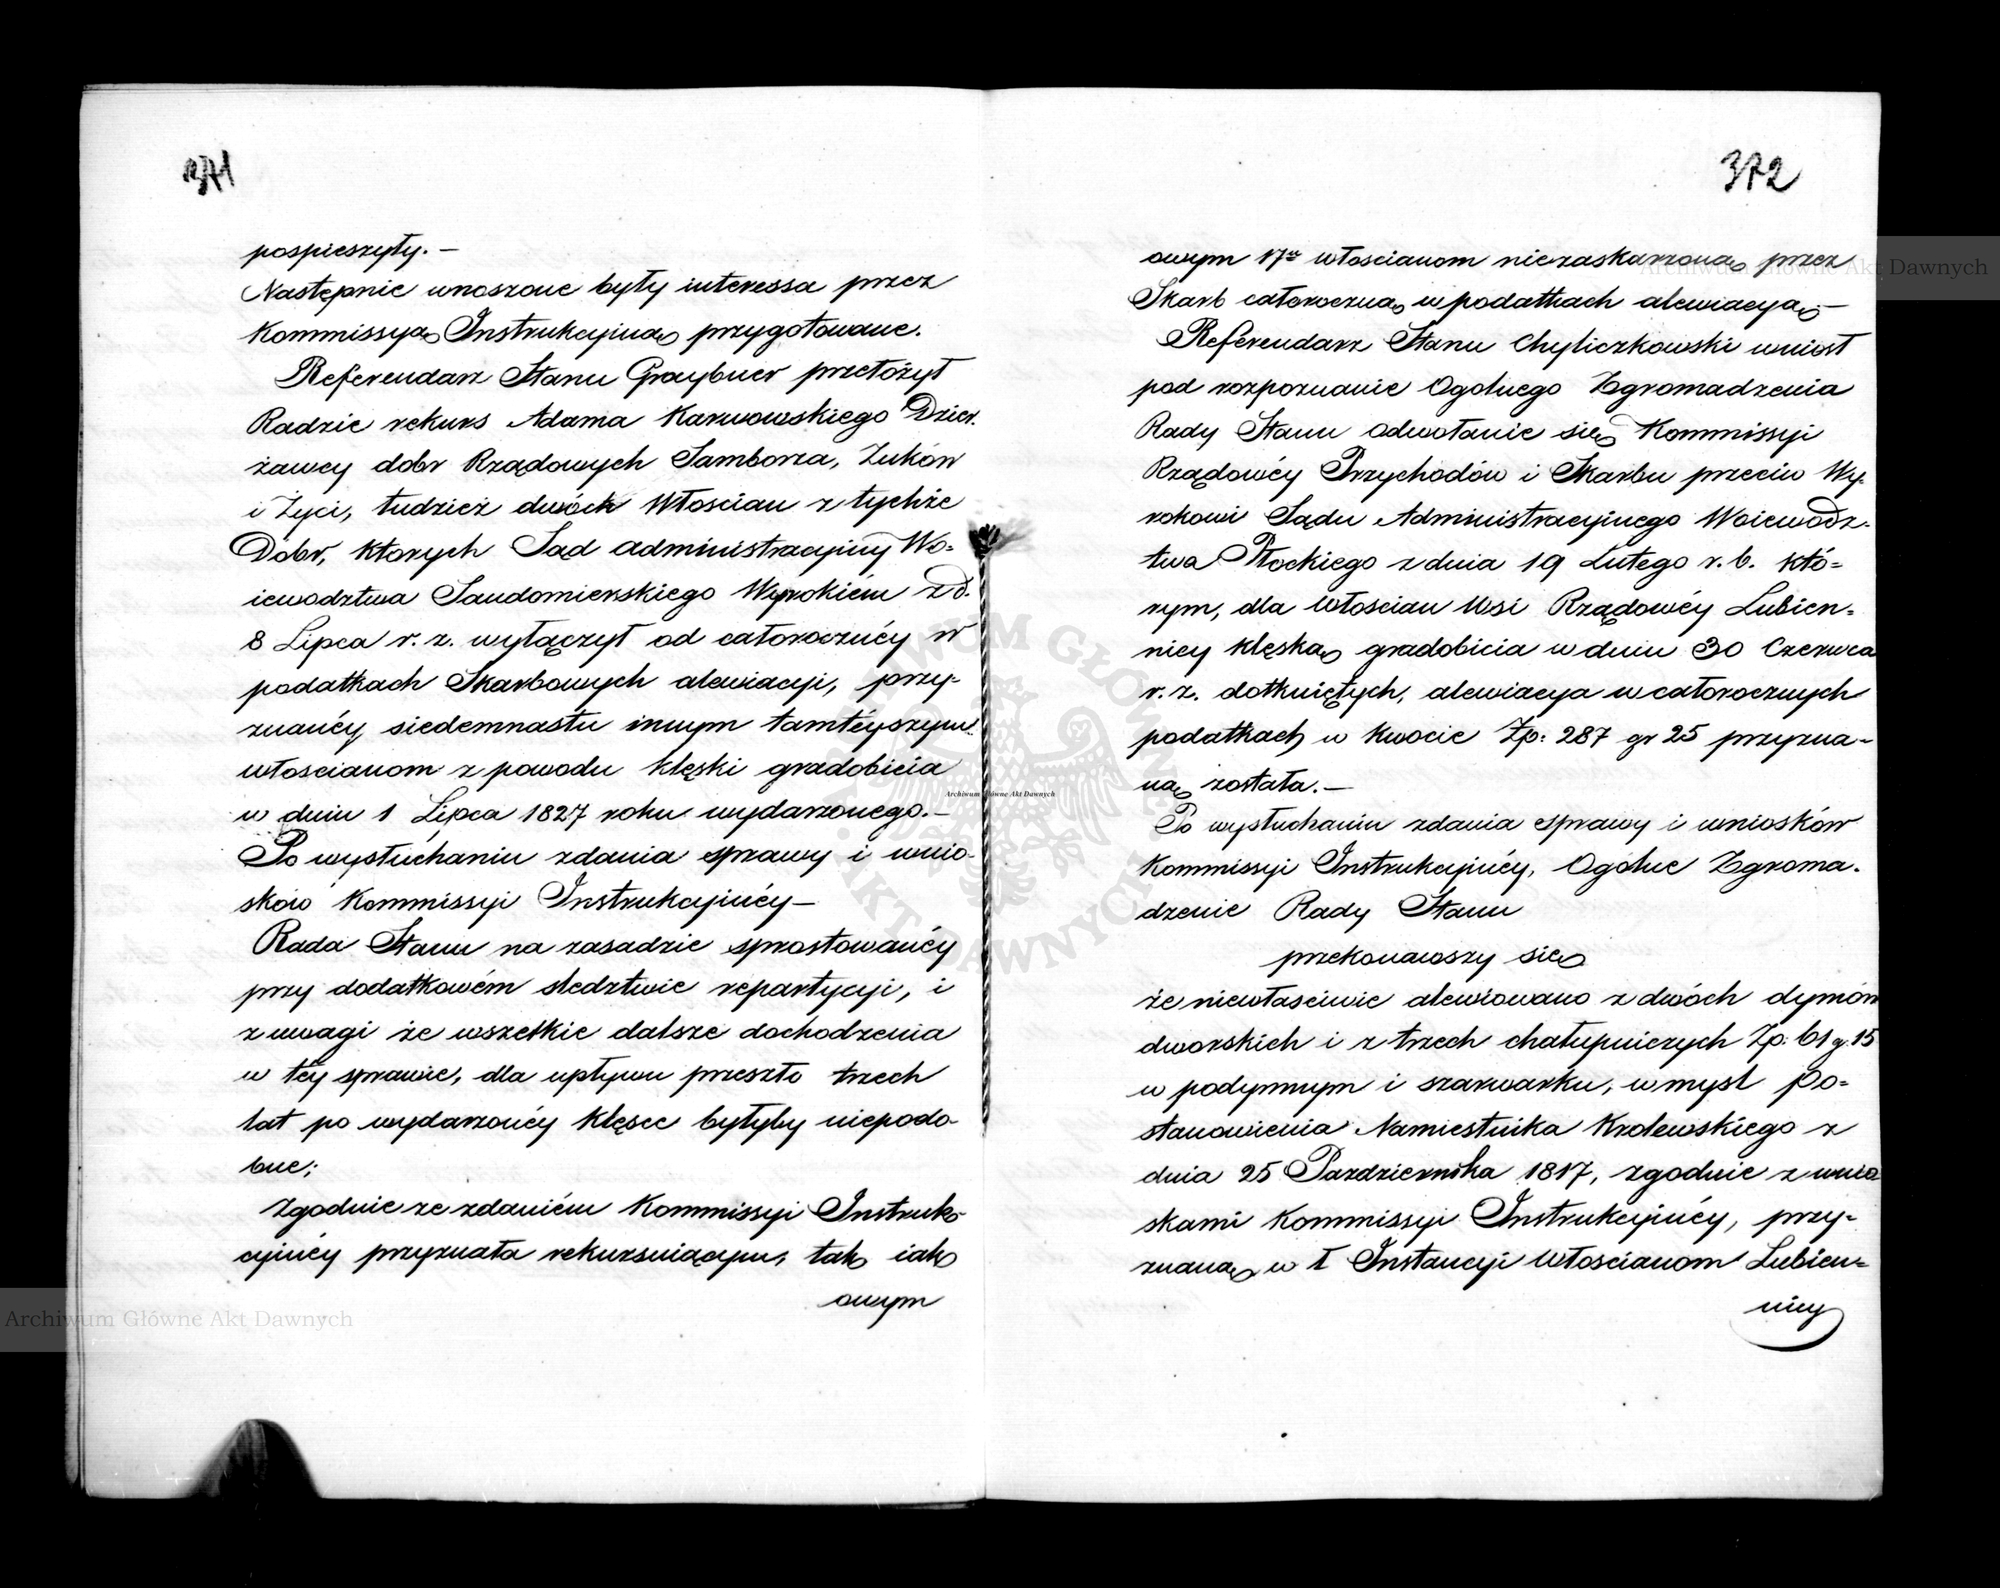 371
pospieszyły. —
Następnie wnoszone były interessa przez
Kommissyą Instrukcyjną przygotowane.
Referendarz Stanu Graybner przełożył
Radzie rekurs Adama Karwowskiego Dzier-
żawcy dobr Rządowych Samborza, Żuków
i Życi, tudzież dwóch Włościan z tychże
Dobr, ktorych Sąd administracyjny Wo-
iewodztwa Sandomierskiego Wyrokiem z d.
8 Lipca r. z. wyłączył od całorocznéy w
podatkach Skarbowych alewiacyi, przy-
znanéy siedemnastu innym tamtéyszym
włoscianom z powodu klęski gradobicia
w dniu 1 Lipca 1827 roku wydarzonego. —
Po wysłuchaniu zdania sprawy i wnio-
sków Kommissyi Instrukcyjnéy —
Rada Stanu na zasadzie sprostowanéy
przy dodatkowém sledztwie repartycyi, i
z uwagi że wszelkie dalsze dochodzenia
w téy sprawie, dla upływu przeszło trzech
lat po wydarzonéy klęsce byłyby niepodo-
bne;
Zgodnie ze zdaniém Kommissyi Instruk-
cyjnéy przyznała rekursuiącym, tak iak
owym
372
owym 17tu włoscianom niezaskarzoną przez
Skarb całoroczną w podatkach alewiacyą —
Referendarz Stanu Chyliczkowski wniosł
pod rozpoznanie Ogolnego Zgromadzenia
Rady Stanu odwołanie się Kommissyi
Rządowéy Przychodów i Skarbu przeciw Wy-
rokowi Sądu Administracyjnego Woiewodz-
twa Płockiego z dnia 19 Lutego r. b. któ-
rym, dla Włoscian Wsi Rządowéy Lubien-
nicy klęską gradobicia w dniu 30 Czerwca
r. z. dotkniętych, alewiacya w całorocznych
podatkach w kwocie Zp: 287 gr 25 przyzna-
ną została. —
Po wysłuchaniu zdania sprawy i wniosków
Kommissyi Instrukcyjnéy, Ogolne Zgroma-
dzenie Rady Stanu
przekonawszy się
że niewłasciwie alewiowano z dwóch dymów
dworskich i z trzech chałupniczych Zp: 61 g. 15
w podymnym i szarwarku, w mysl Po-
stanowienia Namiestnika Krolewskiego z
dnia 25 Pazdziernika 1817, zgodnie z wnio
skami Kommissyi Instrukcyjnéy, przy-
znaną w I Instancyi Włoscianom Lubien-
nicy
Archiwum Główne Akt Dawnych
Archiwum Główne Akt Dawnych
Archiwum Główne Akt Dawnych
ARCHIWUM GŁÓWNE AKT DAWNYCH